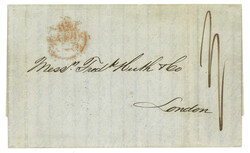 Messrs. Fredk. Huth & Co
London